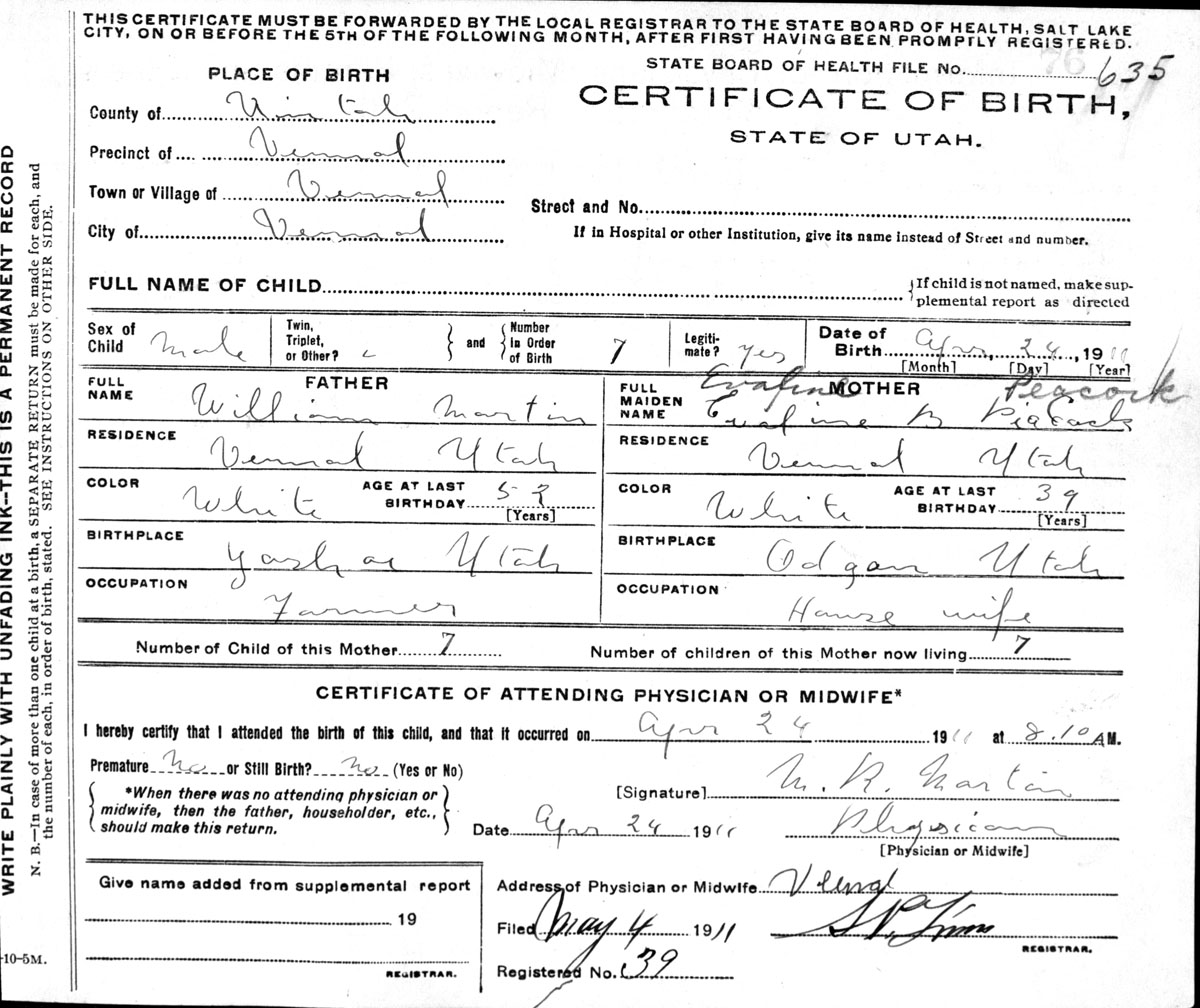 THIS CERTIFICATE MUST BE FORWARDED BY THE LOCAL REGISTRAR TO THE STATE BOARD OF HEALTH, SALT LAKE
CITY, ON OR BEFORE THE 5TH OF THE FOLLOWING MONTH, AFTER FIRST HAVING BEEN PROMPTLY REGISTERED.
STATE BOARD OF HEALTH FILE No. 76 635
PLACE OF BIRTH
CERTIFICATE OF BIRTH,
STATE OF UTAH.
County of Uintah
Precinct of Vernal
Town or Village of Vernal
Street and No.
City of Vernal
If in Hospital or other Institution, give its name instead of Street and number.
FULL NAME OF CHILD
{If child is not named, make sup-
plemental report as directed
Sex of Child Male
Twin, Triplet, or Other?
} and {
Number In Order of Birth 7
Legiti-mate? yes
Date of Birth Apr, 24, 1911
[Month] [Day] [Year]
FATHER
MOTHER
Evafine Peacock
FULL NAME William Martin
FULL MAIDEN NAME B
RESIDENCE Vernal Utah
RESIDENCE Vernal Utah
COLOR White AGE AT LAST BIRTHDAY 52 [Years]
COLOR White AGE AT LAST BIRTHDAY 39 [Years]
BIRTHPLACE Utah
BIRTHPLACE Odgan Utah
OCCUPATION Farmer
OCCUPATION House wife
Number of Child of this Mother 7
Number of children of this Mother now living 7
CERTIFICATE OF ATTENDING PHYSICIAN OR MIDWIFE*
I hereby certify that I attended the birth of this child, and that it occurred on Apr 24 1911 at 8.10 A M.
Premature No or Still Birth? No (Yes or No)
*When there was no attending physician or
midwife, then the father, householder, etc.,
should make this return.
[Signature] Martin
Date Apr 24 1911
Physician
[Physician or Midwife]
Give name added from supplemental report
19
REGISTRAR.
Address of Physician or Midwife Vernal
Filed May 4 1911
REGISTRAR.
Registered No. 39
WRITE PLAINLY WITH UNFADING INK--THIS IS A PERMANENT RECORD
N. B.—In case of more than one child at a birth, a SEPARATE RETURN must be made for each, and
the number of each, in order of birth, stated. SEE INSTRUCTIONS ON OTHER SIDE.
-10-5M.